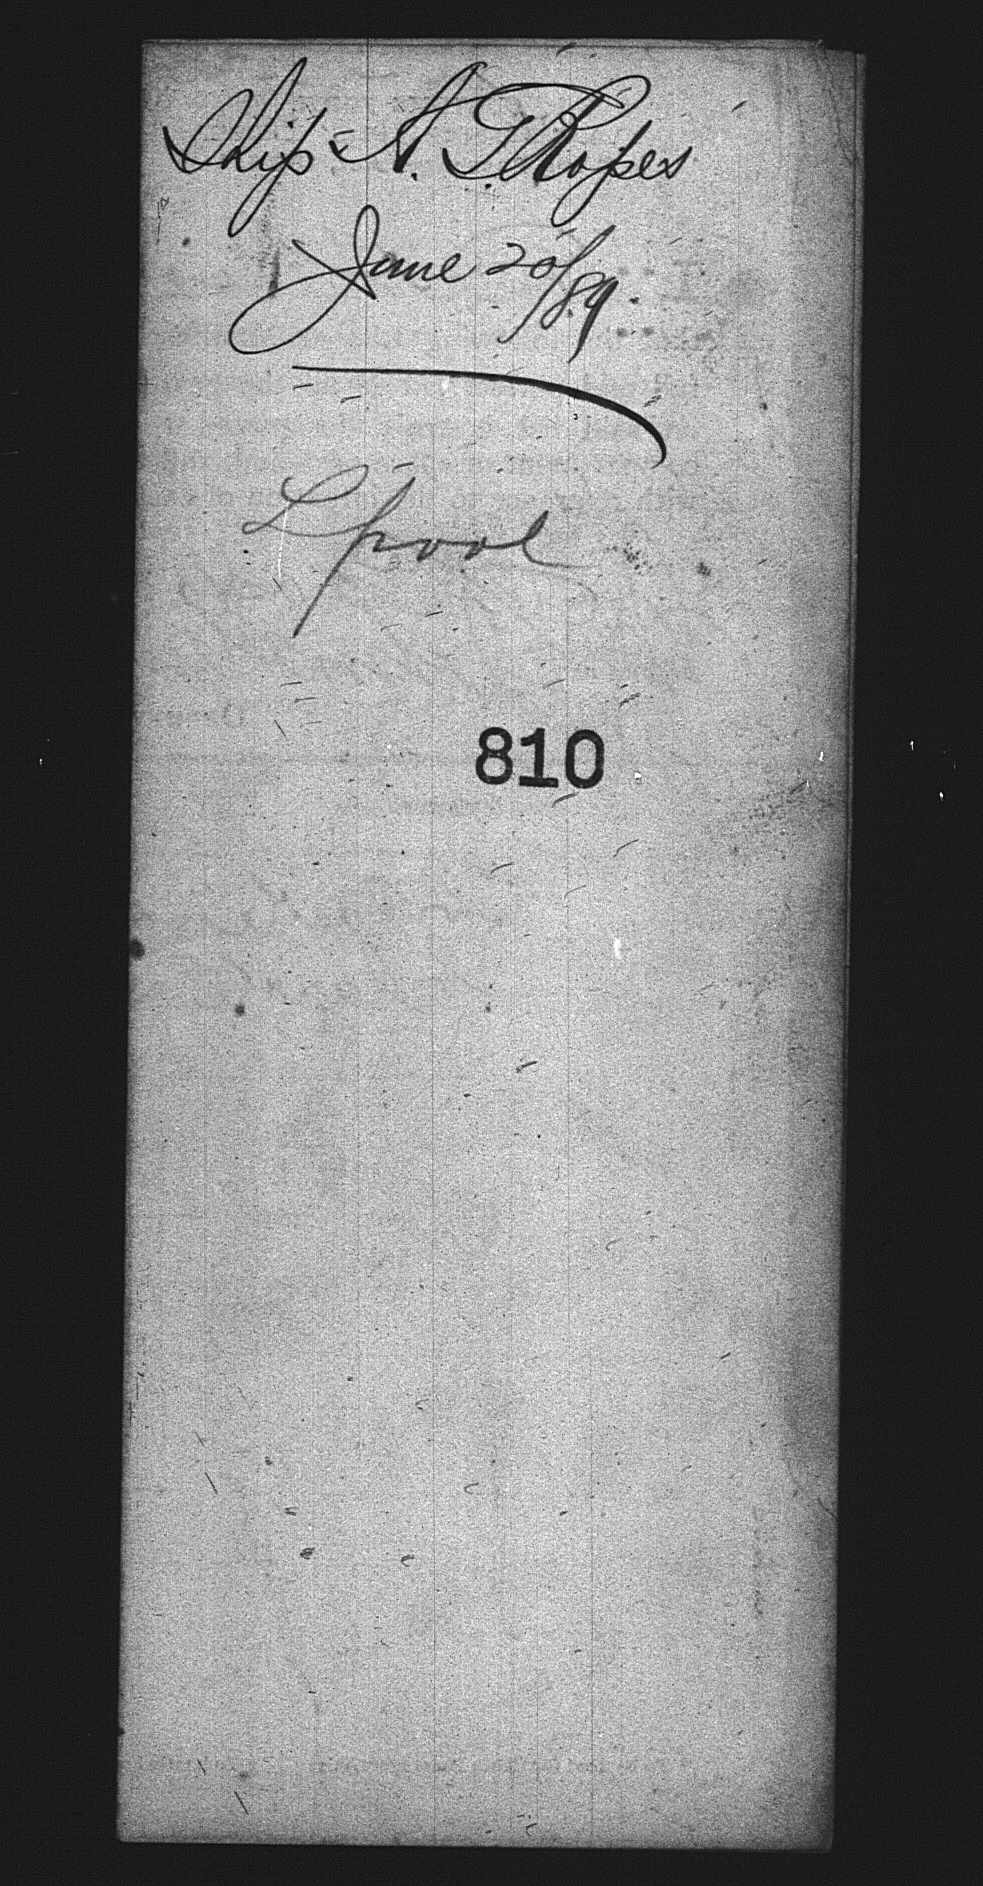 Ship A. G. Ropes
June 20/89.
L'pool
810